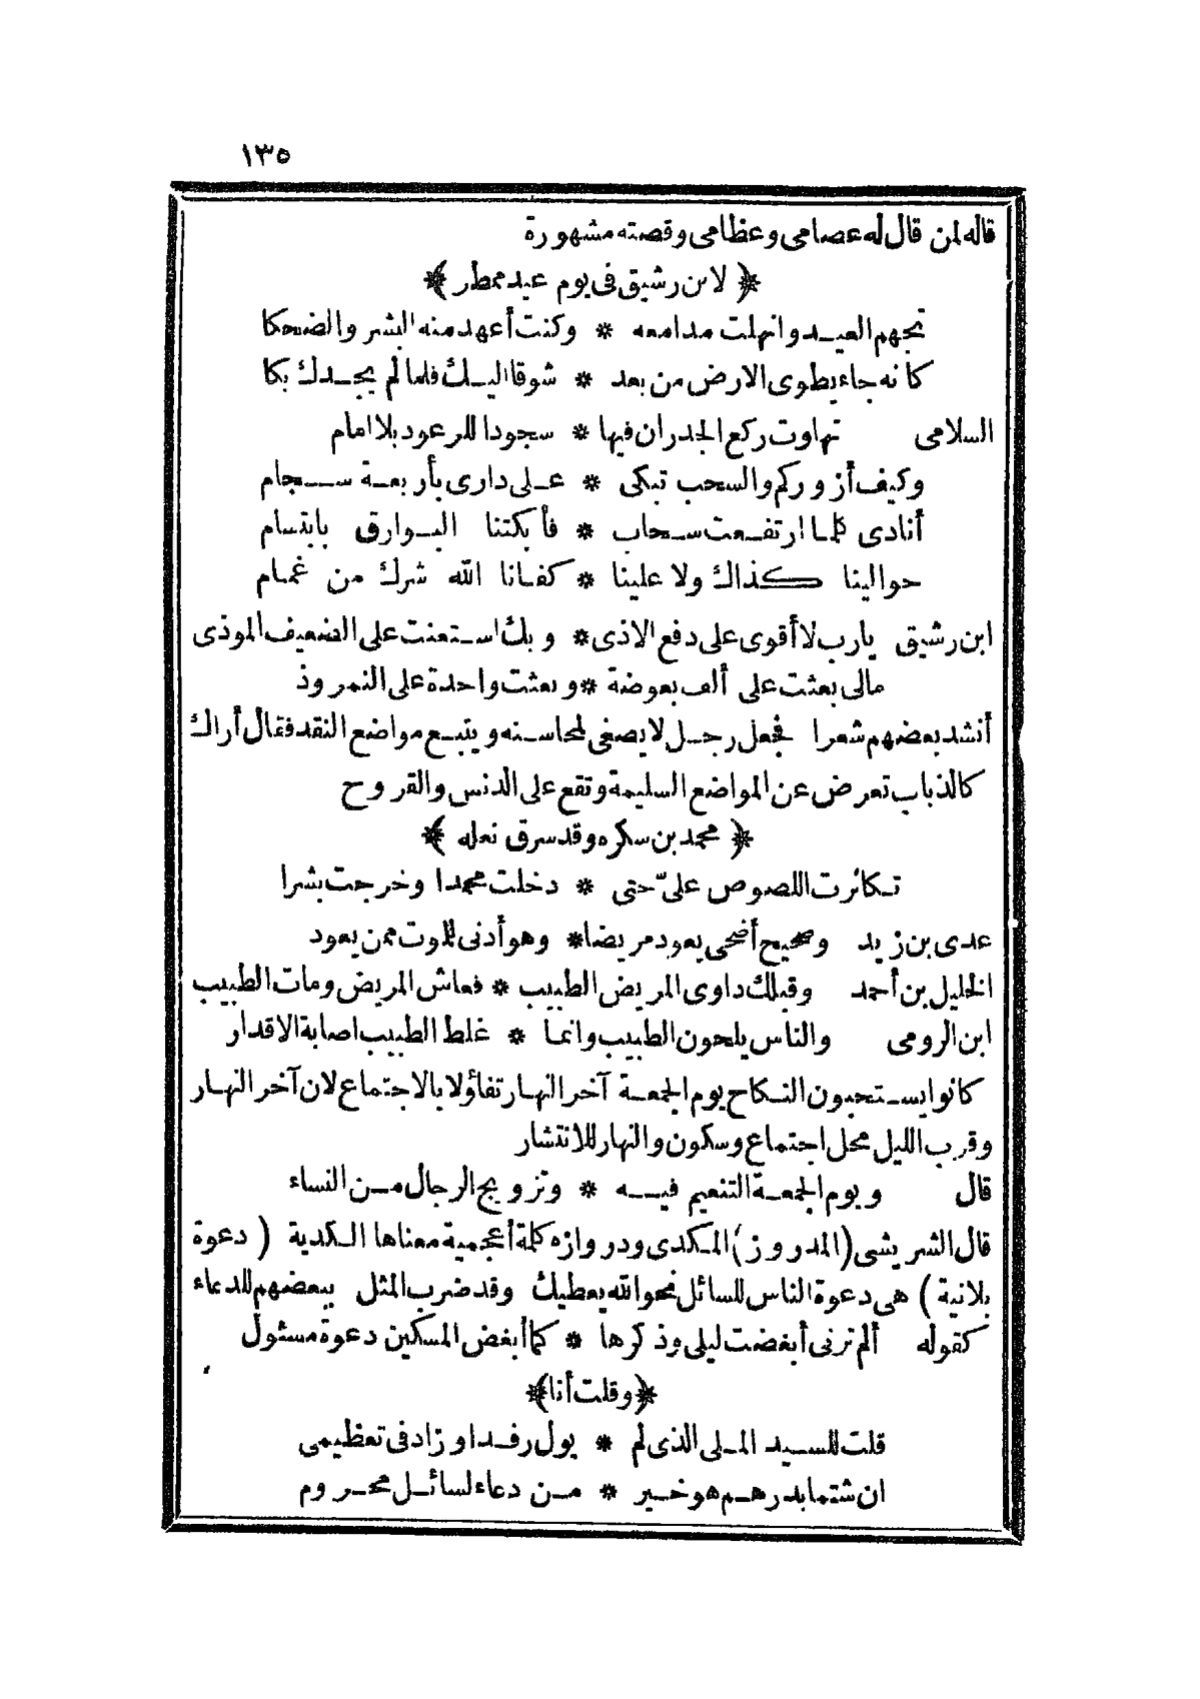 ١٣٥
قاله لمن قال له عصامى وعظامى وقصته مشهورة
﴿ لابن رشيق فى يوم عيد ممطر ﴾
تجهم العيد وانهلت مدامعه * وكنت أعهد منه البشر والضحكا
كانه جاء يطوى الارض من بعد * شوقا اليك فلما لم يجدك بكا
السلامى تهاوت ركع الجدران فيها * سجودا للرعود بلا امام
وكيف أزوركم والسحب تبكى * على دارى بأربعة سجام
أنادى كلما ارتفعت سحاب * فأبكتنا البوارق بابتسام
حوالينا كذاك ولا علينا * كفانا الله شرك من غمام
ابن رشيق يارب لا أقوى على دفع الاذى * وبك استعنت على الضعيف الموذى
مالى بعثت على ألف بعوضة * وبعثت واحدة على النمروذ
أنشد بعضهم شعرا فجعل رجل لا يصغى لمحاسنه ويتبع مواضع النقد فقال أراك
كالذباب تعرض عن المواضع السليمة وتقع على الدنس والقروح
﴿ محمد بن سكره وقد سرق نعله ﴾
تكاثرت اللصوص علىّ حتى * دخلت محمدا وخرجت بشرا
عدى بن زيد وصحيح أضحى يعود مريضا * وهو أدنى للموت ممن يعود
الخليل بن أحمد وقبلك داوى المريض الطبيب * فعاش المريض ومات الطبيب
ابن الرومى والناس يلحون الطبيب وانما * غلط الطبيب اصابة الاقدار
كانوا يستحبون النكاح يوم الجمعة آخر النهار تفاؤلا بالاجتماع لان آخر النهار
وقرب الليل محل اجتماع وسكون والنهار للانتشار
قال ويوم الجمعة التنعيم فيه * وتزويج الرجال من النساء
قال الشريشى (المدروز) المكدى ودروازه كلمة أعجمية معناها الكدية ( دعوة
بلانية ) هى دعوة الناس للسائل نحو الله يعطيك وقد ضرب المثل ببعضهم للدعاء
كقوله ألم ترنى أبغضت ليلى وذكرها * كما أبغض المسكين دعوة مسئول
﴿وقلت أنا﴾
قلت للسيد الملى الذى لم * يول رفدا وزاد فى تعظيمى
ان شتما بدرهم هو خير * من دعاء لسائل محروم